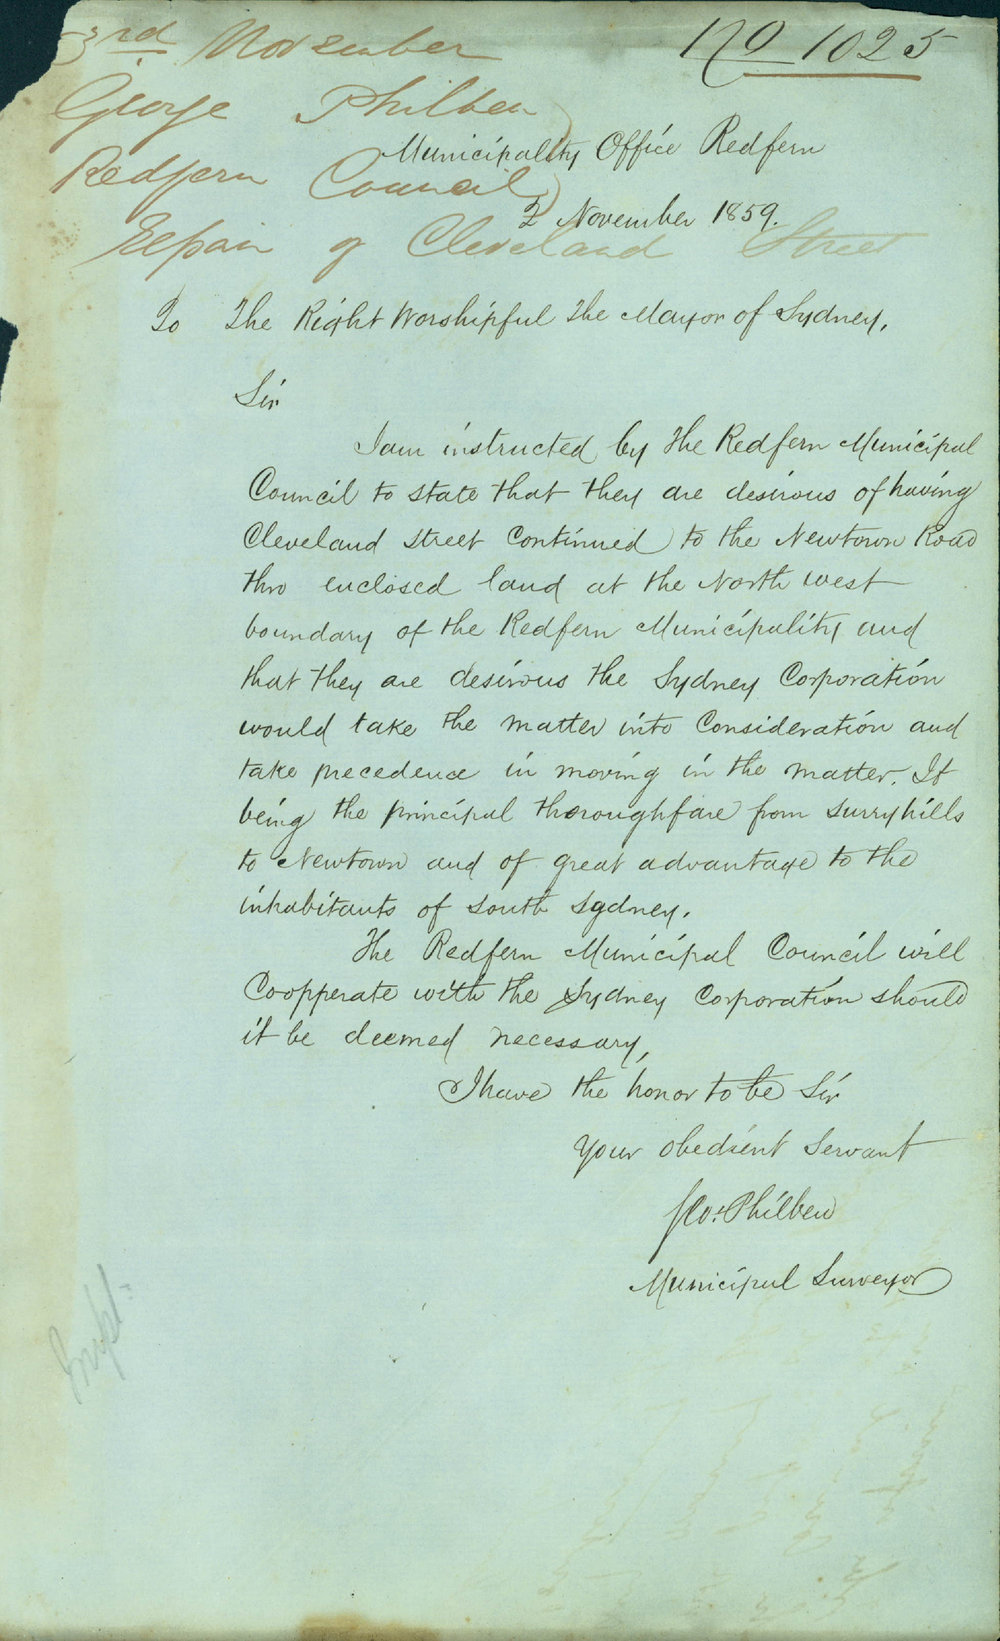 3rd November
No 1025
George Philben
Municipality Office Redfern
Redfern Council
2 November 1859.
Repair of Cleveland Street
To The Right Worshipful The Mayor of Sydney.
Sir
I am instructed by the Redfern Municipal
Council to state that they are desirous of having
Cleveland Street Continued to the Newtown Road
thro enclosed land at the North west
boundary of the Redfern Municipality and
that they are desirous the Sydney Corporation
would take the matter into Consideration and
take precedence in moving in the matter. It
being the principal thoroughfare from Surry hills
to Newtown and of great advantage to the
inhabitants of South Sydney.
The Redfern Municipal Council will
Coopperate with the Sydney Corporation should
it be deemed necessary,
I have the honor to be Sir
Your obedient Servant
Geo. Philben
Municipal Surveyor